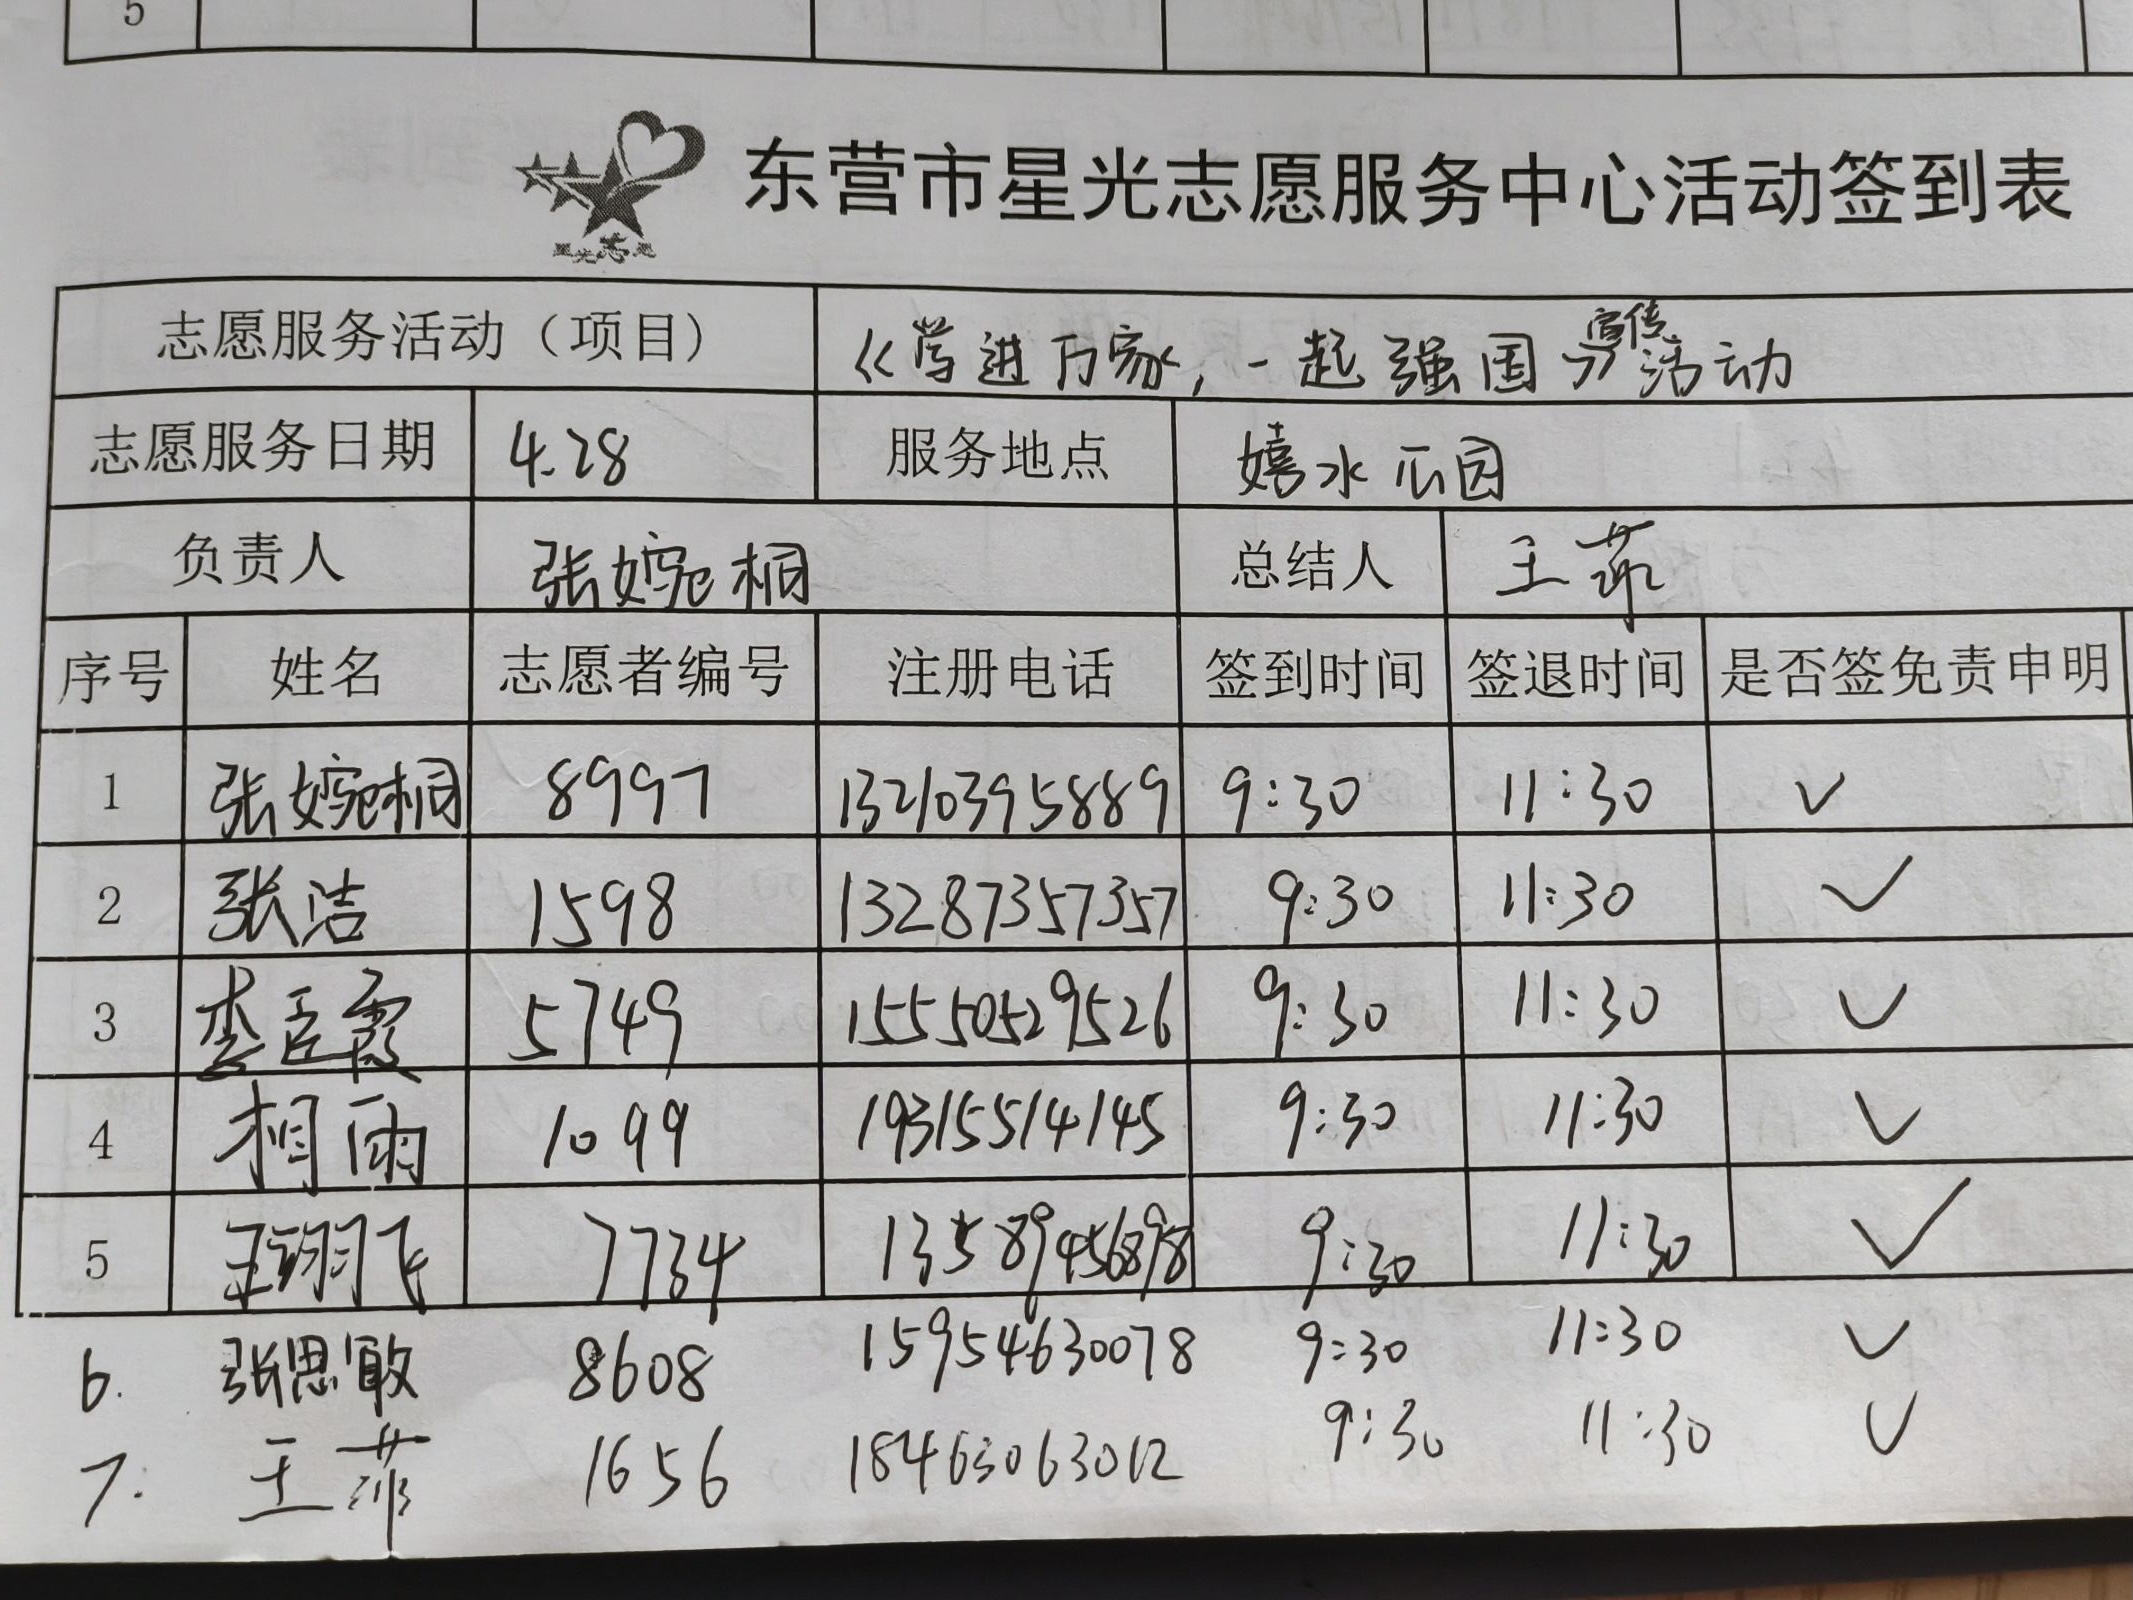 5
星光志愿
东营市星光志愿服务中心活动签到表
志愿服务活动（项目） 《学进万家，一起强国》宣传活动
志愿服务日期 4.28 服务地点 嬉水公园
负责人 张婉桐 总结人 王菲
序号 姓名 志愿者编号 注册电话 签到时间 签退时间 是否签免责申明
1 张婉桐 8997 13210395889 9:30 11:30 ✓
2 张洁 1598 13287357357 9:30 11:30 ✓
3 李臣霞 5749 15550529526 9:30 11:30 ✓
4 相雨 1099 19315514145 9:30 11:30 ✓
5 王翊飞 7734 13589456898 9:30 11:30 ✓
6. 张思敢 8608 15954630078 9:30 11:30 ✓
7. 王菲 1656 18463063012 9:30 11:30 ✓